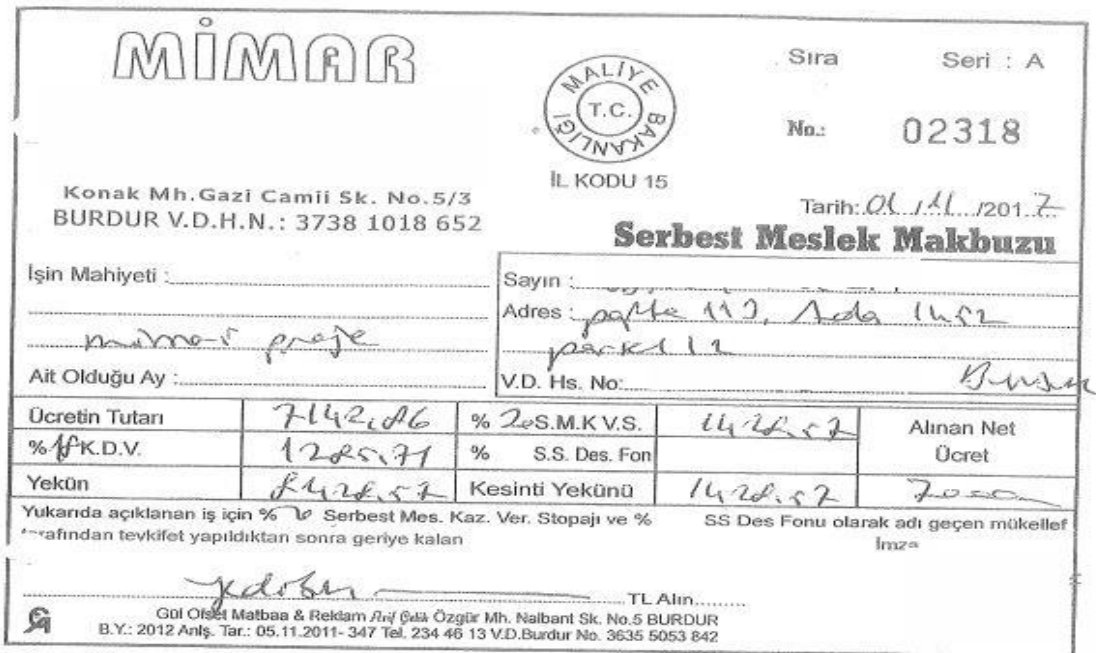 MİMAR
MALİYE BAKANLIĞI
T.C.
İL KODU 15
Sıra Seri : A
No.: 02318
Konak Mh.Gazi Camii Sk. No.5/3
BURDUR V.D.H.N.: 3738 1018 652
Tarih: 01/11/2017
Serbest Meslek Makbuzu
İşin Mahiyeti :
mimari proje
Ait Olduğu Ay :
Sayın :
Adres : pafta 113, Ada 1452
parsel 12
V.D. Hs. No: Burdur
Ücretin Tutarı 7142,86 % 20 S.M.K V.S. 1428,57 Alınan Net Ücret
% 18 K.D.V. 1285,71 % S.S. Des. Fon
Yekün 8428,57 Kesinti Yekünü 1428,57 7000
Yukarıda açıklanan iş için % 20 Serbest Mes. Kaz. Ver. Stopajı ve % SS Des Fonu olarak adı geçen mükellef
tarafından tevkifet yapıldıktan sonra geriye kalan İmza
yedibin TL Alın
Gül Ofset Matbaa & Reklam Arif Çelik Özgür Mh. Nalbant Sk. No.5 BURDUR
B.Y.: 2012 Anlş. Tar.: 05.11.2011- 347 Tel. 234 46 13 V.D.Burdur No. 3635 5053 842